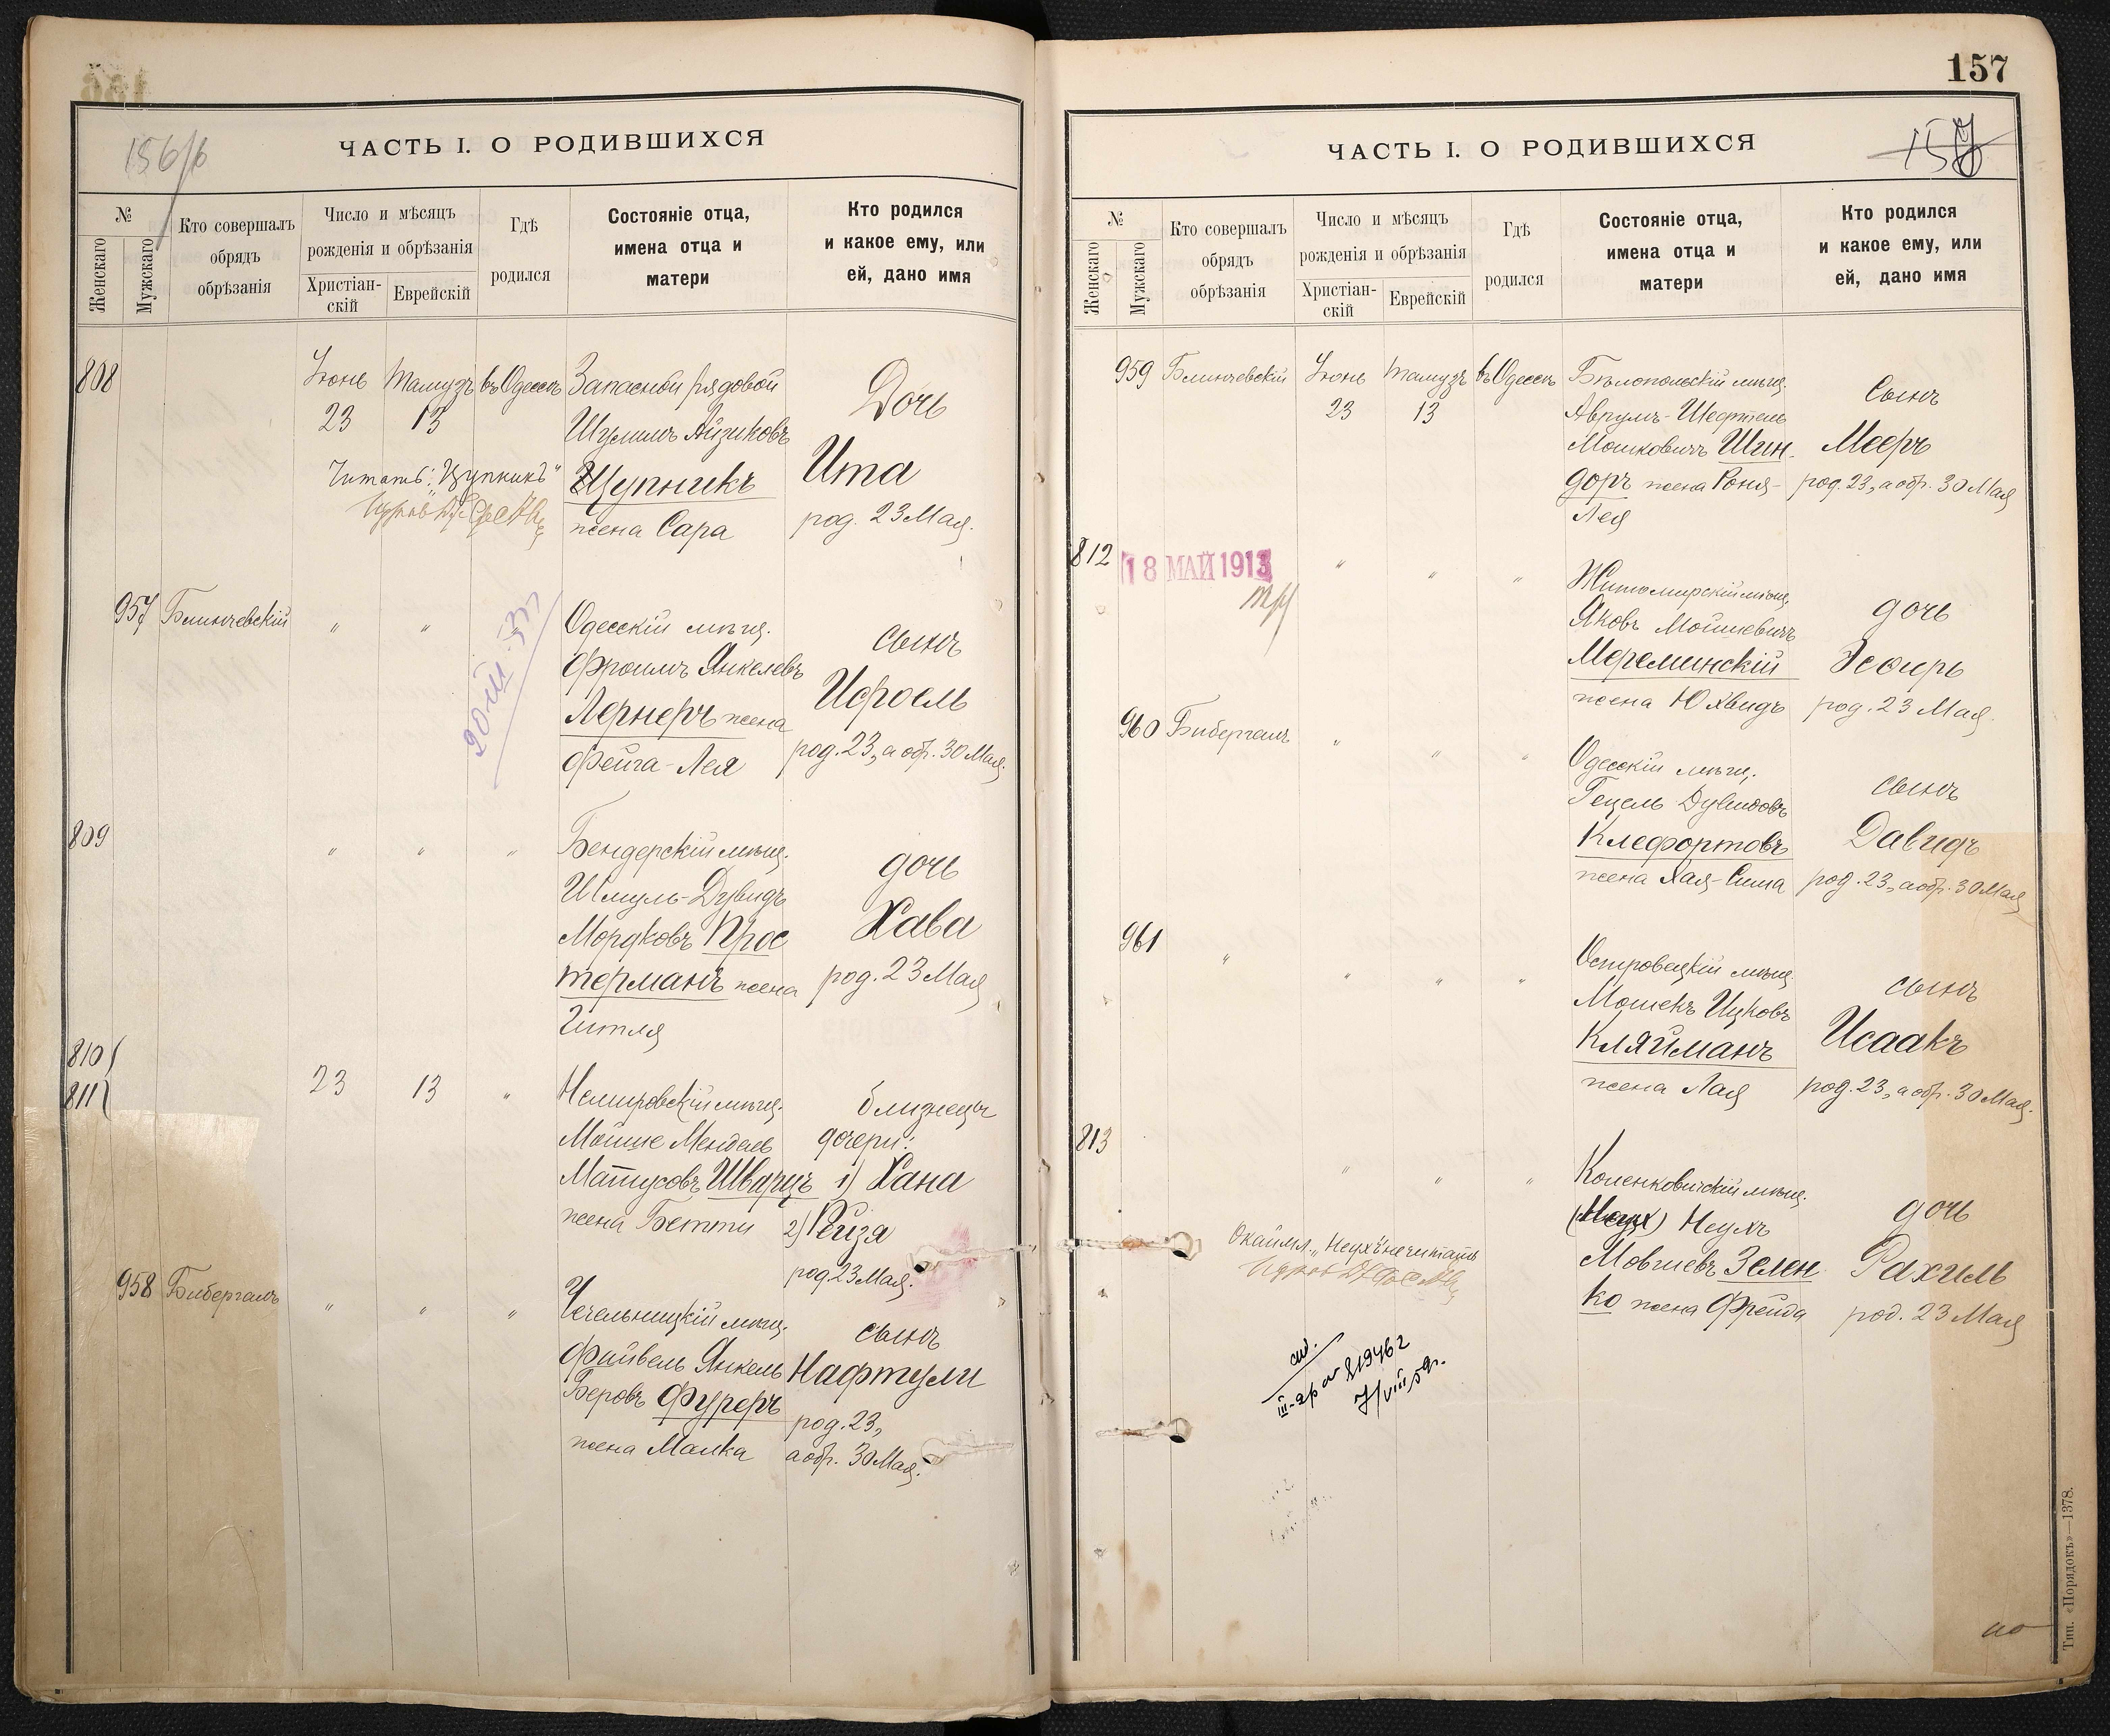 156/б
ЧАСТЬ I. О РОДИВШИХСЯ
№
Женскаго
Мужскаго
Кто совершалъ
обрядъ
обрѣзанія
Число и мѣсяцъ
рожденія и обрѣзанія
Христіан-
скій
Еврейскій
Гдѣ
родился
Состояніе отца,
имена отца и
матери
Кто родился
и какое ему, или
ей, дано имя
808
Іюнь
23
Тамузъ
13
въ Одессѣ
Запасной рядовой
Шулимъ Айзиковъ
Цупникъ
жена Сара
Дочь
Ита
род. 23 Мая.
Читать: „Цупникъ"
957 Блинчевскій
"
"
20/III-37
Одесскій мѣщ.
Фроимъ Янкелевъ
Лернеръ жена
Фейга-Лея
сынъ
Исроель
род. 23, а обр. 30 Мая.
809
"
"
"
Бендерскій мѣщ.
Шмуль-Дувидъ
Мордковъ Прос
терманъ жена
Гитля
дочь
Хава
род. 23 Мая
810
811
23
13
"
Немировскій мѣщ.
Мойше Мендель
Матусовъ Шварцъ
жена Бетти
близнецы
дочери:
1) Хана
2) Рейза
род. 23 Мая.
958 Бибергалъ
"
"
"
Чечельницкій мѣщ.
Файвель Янкель
Беровъ Фуреръ
жена Малка
сынъ
Нафтули
род. 23,
а обр. 30 Мая.
157
157
ЧАСТЬ I. О РОДИВШИХСЯ
№
Женскаго
Мужскаго
Кто совершалъ
обрядъ
обрѣзанія
Число и мѣсяцъ
рожденія и обрѣзанія
Христіан-
скій
Еврейскій
Гдѣ
родился
Состояніе отца,
имена отца и
матери
Кто родился
и какое ему, или
ей, дано имя
959 Блинчевскій
Іюнь
23
Тамузъ
13
въ Одессѣ
Бѣлопольскій мѣщ.
Аврумъ-Шефтель
Мошковичъ Шин-
доръ жена Роня-
Лея
сынъ
Мееръ
род. 23, а обр. 30 Мая
812
18 МАЙ 1913
"
"
"
Житомирскій мѣщ.
Яковъ Мойшевичъ
Мереминскій
жена Юхвидъ
дочь
Эсѳирь
род. 23 Мая.
960 Бибергалъ
"
"
"
Одесскій мѣщ.
Гецель Дувидовъ
Клефортовъ
жена Хая-Сима
сынъ
Давидъ
род. 23, а обр. 30 Мая
961
"
"
"
"
Островецкій мѣщ.
Мошекъ Ицковъ
Кляйманъ
жена Лая
сынъ
Исаакъ
род. 23, а обр. 30 Мая.
813
"
"
"
Коленковичскій мѣщ.
Неухъ
Мовшевъ Зелен
ко жена Фрейда
дочь
Рахиль
род. 23 Мая
Окаймл. „Неухъ" не читать
819462
7/VIII 59г.
Тип. «Порядокъ»—1378.